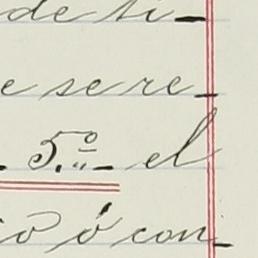 de ti-
e se re-
5.º el
io ó con-